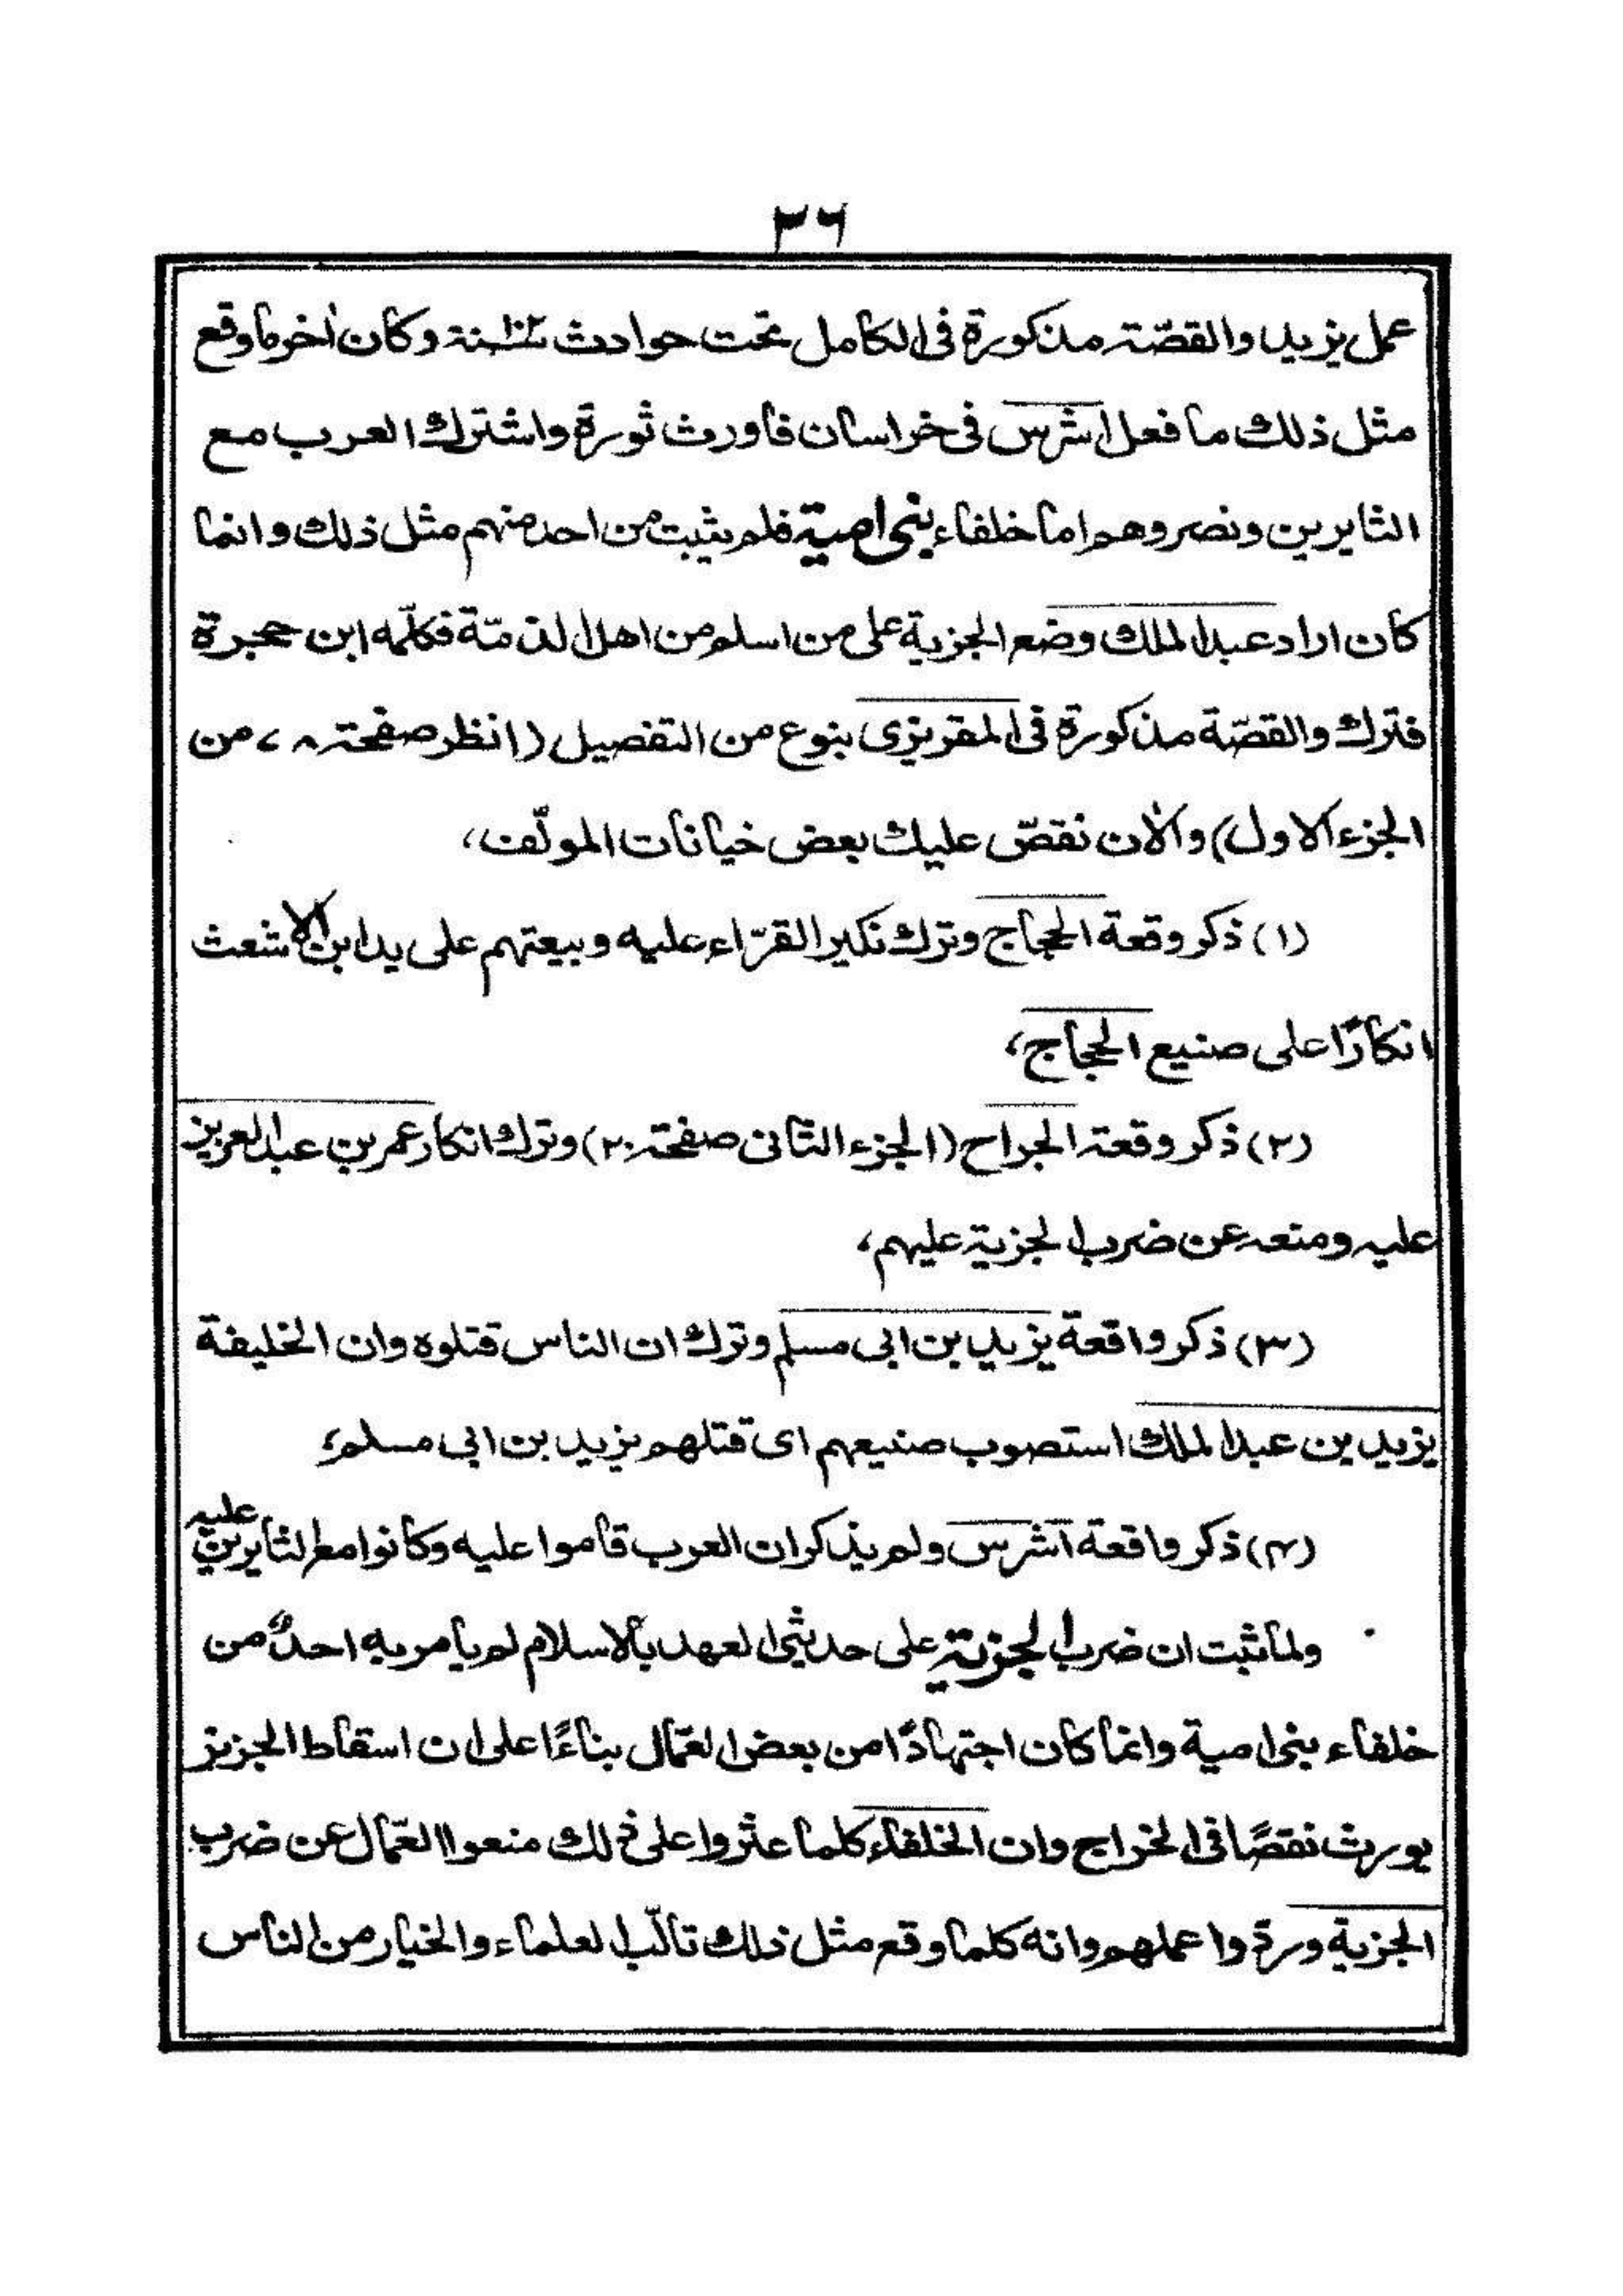 ٣٦
عمل يزيد والقصّة مذكورة فى الكامل تحت حوادث سنة وكان اٰخر ما وقع
مثل ذلك ما فعل اشرس فى خراسان فاورث ثورة واشترك العرب مع
الثايرين ونصروهم اما خلفاء بنى امية فلم يثبت من احد منهم مثل ذلك وانما
كان اراد عبد الملك وضع الجزية على من اسلم من اهل الذمّة فكلّمه ابن حجيرة
فترك والقصّة مذكورة فى المقريزى بنوع من التفصيل (انظر صفحة ٧٨ من
الجزء الاول) والاٰن نقصّ عليك بعض خيانات المولّف،
(١) ذكر وقعة الحجاج وترك نكير القرّاء عليه وبيعتهم على يد ابن الاشعث
انكارًا على صنيع الحجاج،
(٢) ذكر وقعة الجراح (الجزء الثانى صفحة ٢٠) وترك انكار عمر بن عبد العزيز
عليه ومنعه عن ضرب الجزية عليهم،
(٣) ذكر واقعة يزيد بن ابى مسلم وترك ان الناس قتلوه وان الخليفة
يزيد بن عبد الملك استصوب صنيعهم اى قتلهم يزيد بن ابى مسلم،
(٤) ذكر واقعة اشرس ولم يذكر ان العرب قاموا عليه وكانوا مع الثايرين عليه
ولما ثبت ان ضرب الجزية على حديثى العهد بالاسلام لم يأمر به احدٌ من
خلفاء بنى امية وانما كان اجتهادًا من بعض العمّال بناءًا على ان اسقاط الجزية
يورث نقصًا فى الخراج وان الخلفاء كلما عثروا على ذلك منعوا العمّال عن ضرب
الجزية وردّوا عملهم وانه كلما وقع مثل ذلك تألّب العلماء والخيار من الناس